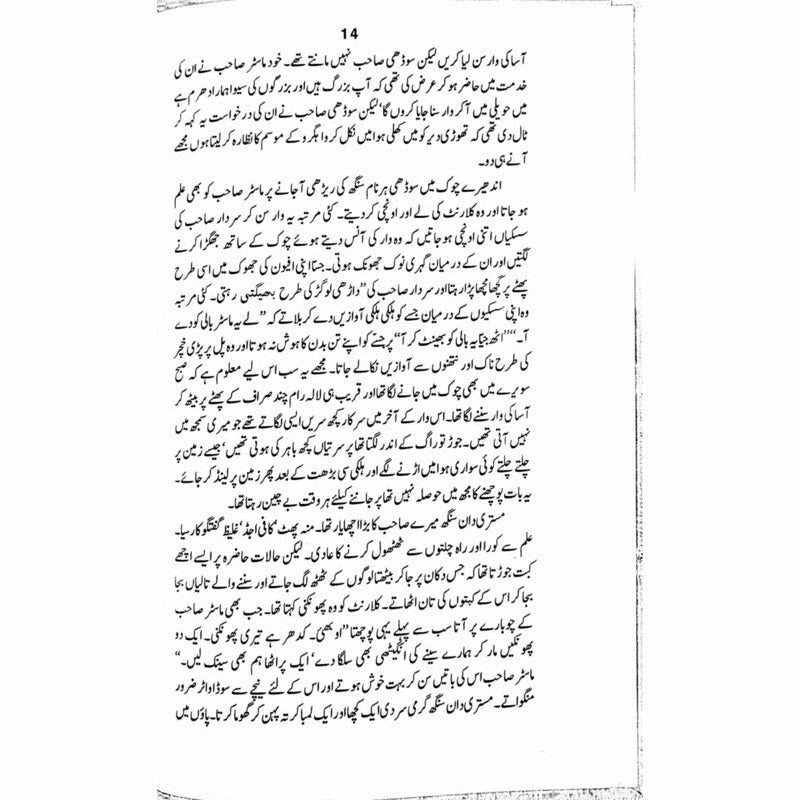 14
آسا کی وار سن لیا کریں لیکن سوڈھی صاحب نہیں مانتے تھے۔ خود ماسٹر صاحب نے ان کی
خدمت میں حاضر ہو کر عرض کی تھی کہ آپ بزرگ ہیں اور بزرگوں کی سیوا ہمارا دھرم ہے
میں حویلی میں آ کر وار سنا جایا کروں گا‘ لیکن سوڈھی صاحب نے ان کی درخواست یہ کہہ کر
ٹال دی تھی کہ تھوڑی دیر کو میں کھلی ہوا میں نکل کر واہگرو کے موسم کا نظارہ کر لیتا ہوں مجھے
آنے ہی دو۔
اندھیرے چوک میں سوڈھی ہرنام سنگھ کی ریڑھی آ جانے پر ماسٹر صاحب کو بھی علم
ہو جاتا اور وہ کلارنٹ کی لے اور اونچی کر دیتے۔ کئی مرتبہ یہ وار سن کر سردار صاحب کی
سسکیاں اتنی اونچی ہو جاتیں کہ وہ وار کی آنس دیتے ہوئے چوک کے ساتھ جھگڑا کرنے
لگتیں اور ان کے درمیان گہری نوک جھونک ہوتی۔ جسا اپنی افیون کی جھوک میں اسی طرح
پھٹے پر گچھا مچھا پڑا رہتا اور سردار صاحب کی ”داڑھی لوگڑ کی طرح بھیگتی رہتی۔ کئی مرتبہ
وہ اپنی سسکیوں کے درمیان جسے کو ہلکی ہلکی آوازیں دے کر بلاتے کہ ”لے یہ ماسٹر بالی کو دے
آ۔“ ”اٹھ جسّا یہ بالی کو بھینٹ کر آ“ پر جسّے کو اپنے تن بدن کا ہوش نہ ہوتا اور وہ پل پر پڑی خچر
کی طرح ناک اور نتھنوں سے آوازیں نکالے جاتا۔ مجھے یہ سب اس لیے معلوم ہے کہ صبح
سویرے میں بھی چوک میں جانے لگا تھا اور قریب ہی لالہ رام چند صراف کے پھٹے پر بیٹھ کر
آسا کی وار سننے لگا تھا۔ اس وار کے آخر میں سرکار کچھ سریں ایسی لگاتے تھے جو میری سمجھ میں
نہیں آتی تھیں۔ جوڑ تو راگ کے اندر لگتا تھا پر سرتیاں کچھ باہر کی ہوتی تھیں‘ جیسے زمین پر
چلتے چلتے کوئی سواری ہوا میں اڑنے لگے اور ہلکی سی بڑھت کے بعد پھر زمین پر لینڈ کر جائے۔
یہ بات پوچھنے کا مجھ میں حوصلہ نہیں تھا پر جاننے کیلئے ہر وقت بے چین رہتا تھا۔
مستری دان سنگھ میرے صاحب کا بڑا اچھا یار تھا۔ منہ پھٹ‘ کافی اجڈ‘ غلیظ گفتگو کا رسیا۔
علم سے کورا اور راہ چلتوں سے ٹھٹھول کرنے کا عادی۔ لیکن حالات حاضرہ پر ایسے اچھے
کبت جوڑتا تھا کہ جس دکان پر جا کر بیٹھتا لوگوں کے ٹھٹھ لگ جاتے اور سننے والے تالیاں بجا
بجا کر اس کے کبتوں کی تان اٹھاتے۔ کلارنٹ کو وہ پھونکنی کہتا تھا۔ جب بھی ماسٹر صاحب
کے چوبارے پر آتا سب سے پہلے یہی پوچھتا ”او بھئی۔ کدھر ہے تیری پھونکنی۔ ایک دو
پھونکیں مار کر ہمارے سینے کی انگیٹھی بھی سلگا دے‘ ایک پراٹھا ہم بھی سینک لیں۔“
ماسٹر صاحب اس کی باتیں سن کر بہت خوش ہوتے اور اس کے لئے نیچے سے سوڈا واٹر ضرور
منگواتے۔ مستری دان سنگھ گرمی سردی ایک کچھا اور ایک لمبا کرتہ پہن کر گھوما کرتا۔ پاؤں میں